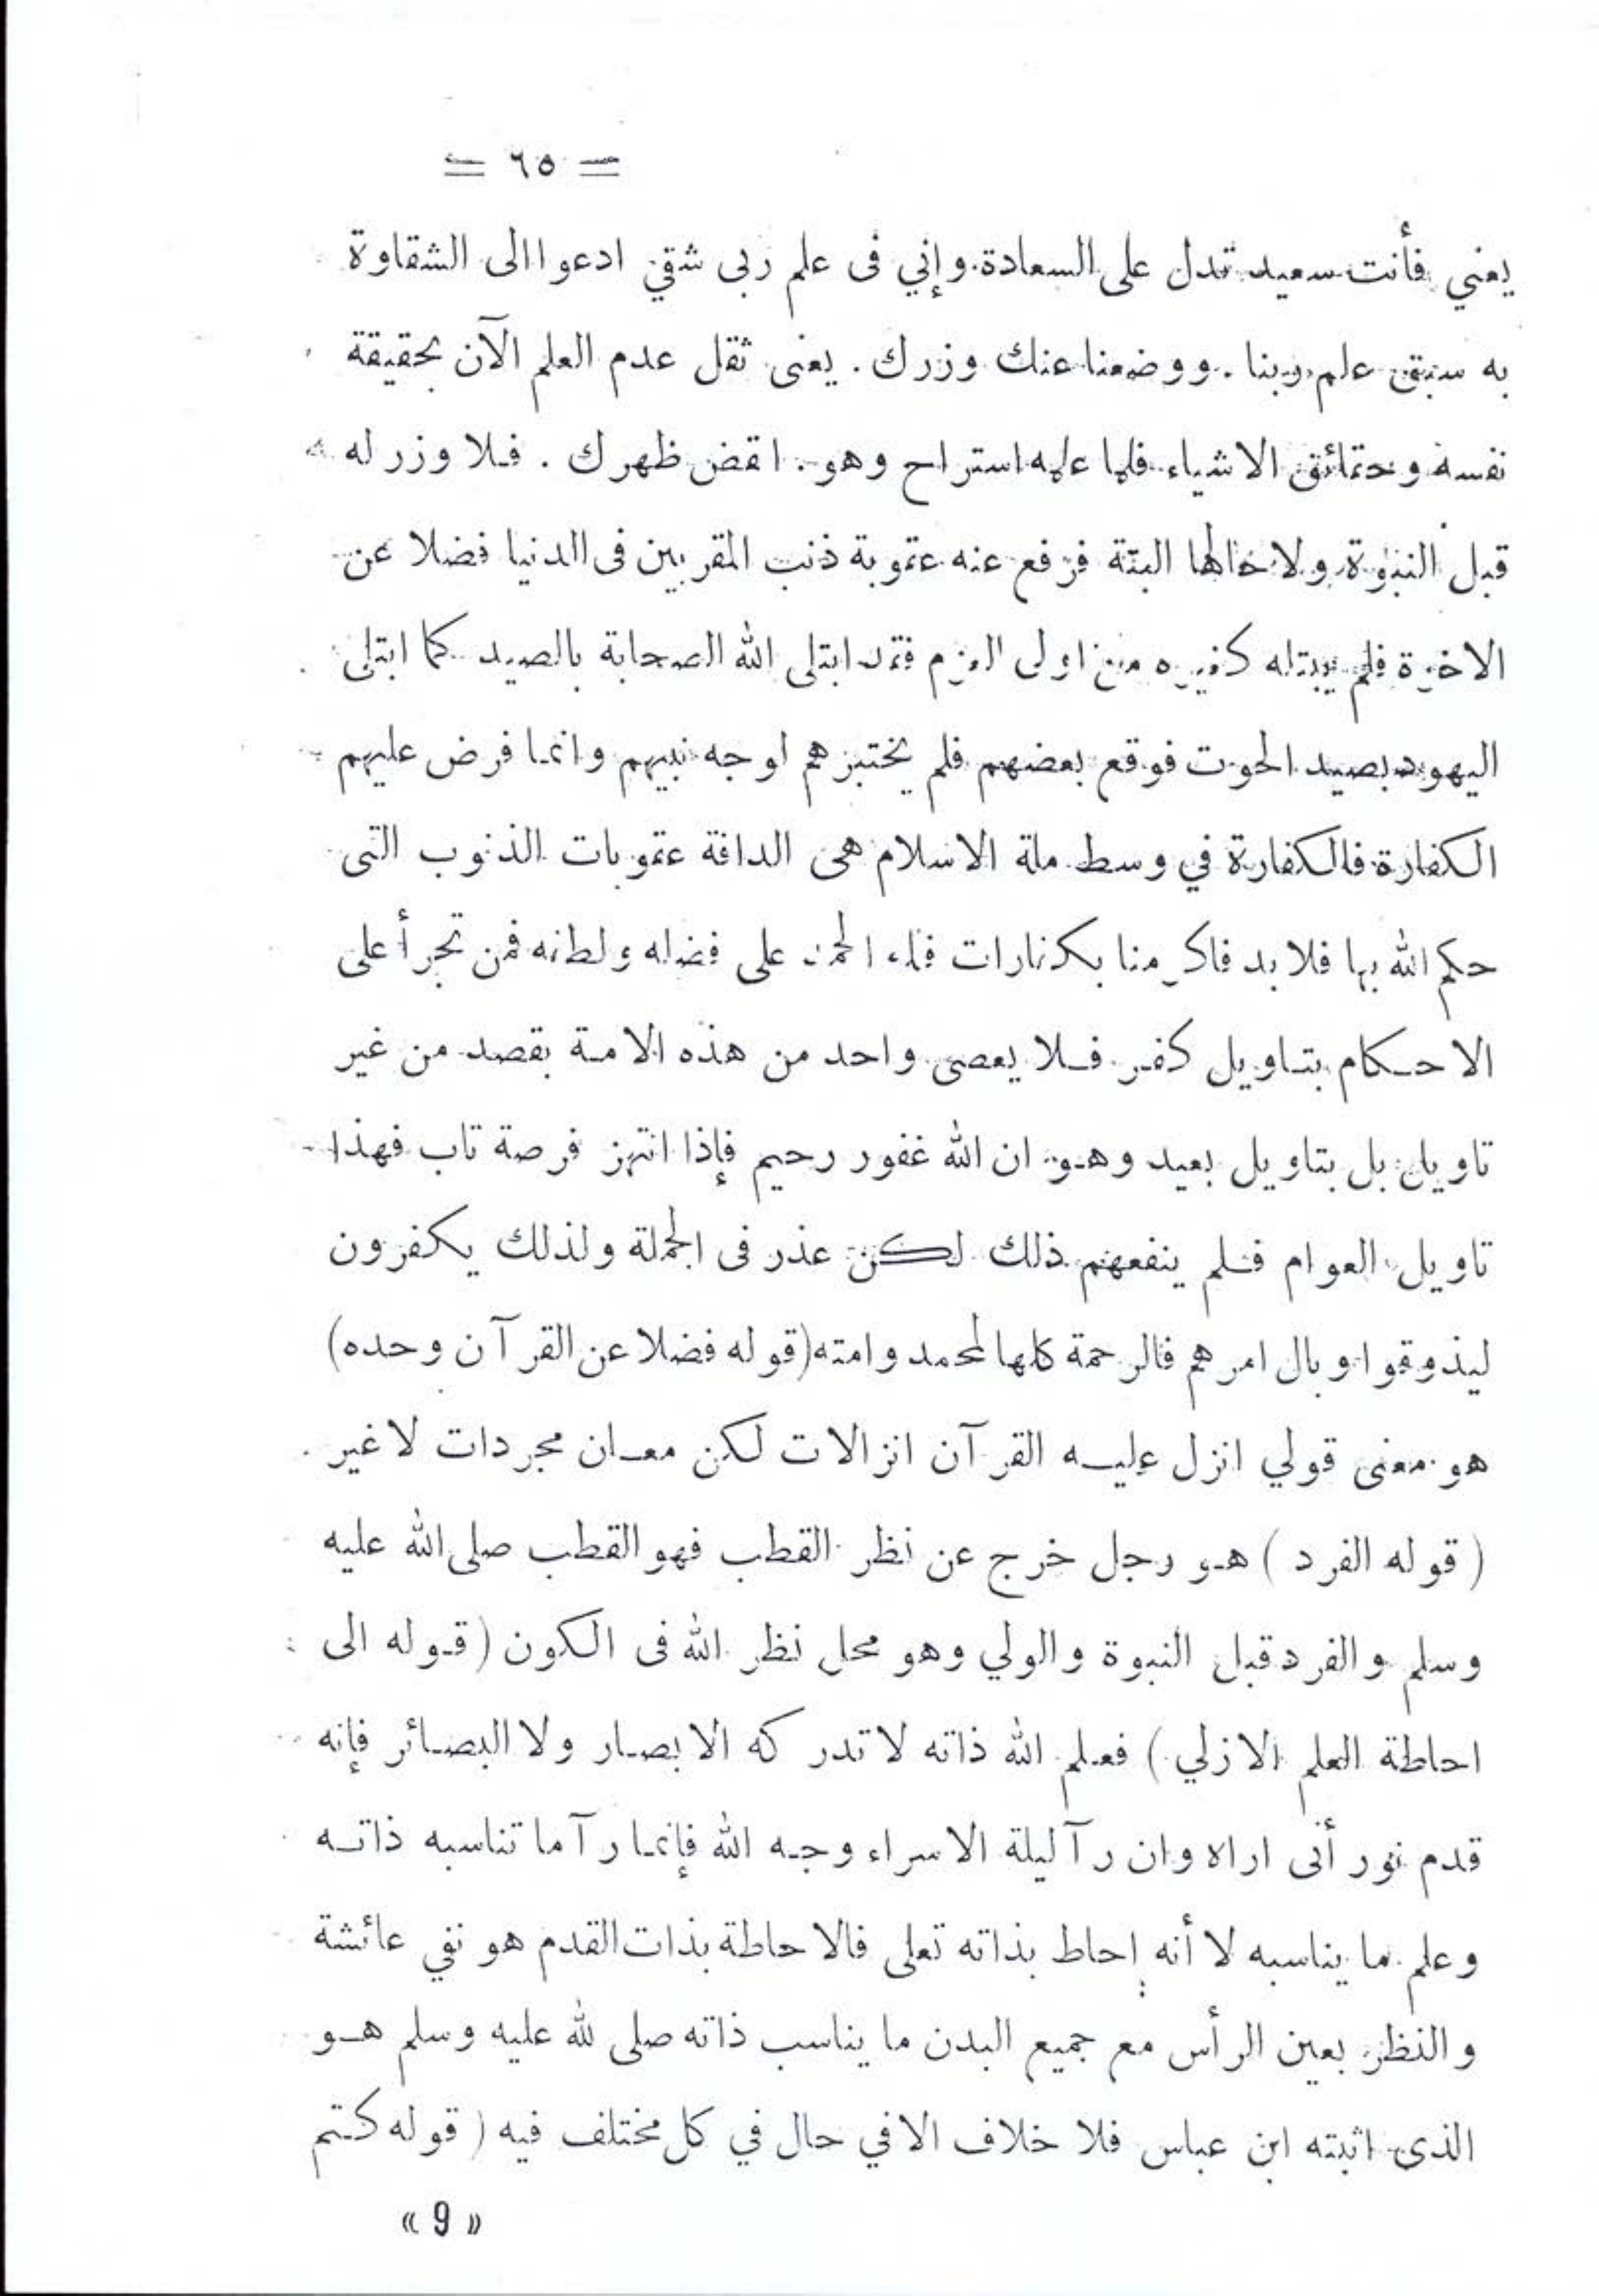 = ٦٥ =
يعني فأنت سعيد تدل على السعادة وإني فى علم ربى شقي ادعوا الى الشقاوة
به سبق علم ربنا . ووضعنا عنك وزرك . يعنى ثقل عدم العلم الآن بحقيقة
نفسه وحقائق الاشياء فلما علمه استراح وهو . انقض ظهرك . فلا وزر له
قبل النبوة ولا خالها البتة فرفع عنه عقوبة ذنب المقربين فى الدنيا فضلا عن
الاخرة فلم يبتله كغيره من اولى العزم فقد ابتلى الله الصحابة بالصيد كما ابتلى
اليهود بصيد الحوت فوقع بعضهم فلم يختبرهم اوجه نبيهم وانما فرض عليهم
الكفارة فالكفارة في وسط ملة الاسلام هى الدافة عقوبات الذنوب التى
حكم الله بها فلا بد فاكرمنا بكفارات فلله الحمد على فضله ولطفه فمن تجرأ على
الاحكام بتاويل كفر فلا يعصى واحد من هذه الامة بقصد من غير
تاويل بل بتاويل بعيد وهو ان الله غفور رحيم فإذا انتهز فرصة تاب فهذا
تاويل العوام فلم ينفعهم ذلك لكن عذر فى الجملة ولذلك يكفرون
ليذوقوا وبال امرهم فالرحمة كلها لمحمد وامته (قوله فضلا عن القرآن وحده)
هو معنى قولي انزل عليه القرآن انزالات لكن معان مجردات لا غير .
( قوله الفرد ) هو رجل خرج عن نظر القطب فهو القطب صلى الله عليه
وسلم والفرد قبل النبوة والولي وهو محل نظر الله فى الكون ( قوله الى
احاطة العلم الازلي ) فعلم الله ذاته لا تدركه الابصار ولا البصائر فإنه
قدم نور أنى اراه وان رآ ليلة الاسراء وجه الله فإنما رآ ما تناسبه ذاته
وعلم ما يناسبه لا أنه إحاط بذاته تعلى فالاحاطة بذات القدم هو نفي عائشة
والنظر بعين الرأس مع جميع البدن ما يناسب ذاته صلى لله عليه وسلم هو
الذى اثبته ابن عباس فلا خلاف الا في حال في كل مختلف فيه ( قوله كتم
« 9 »